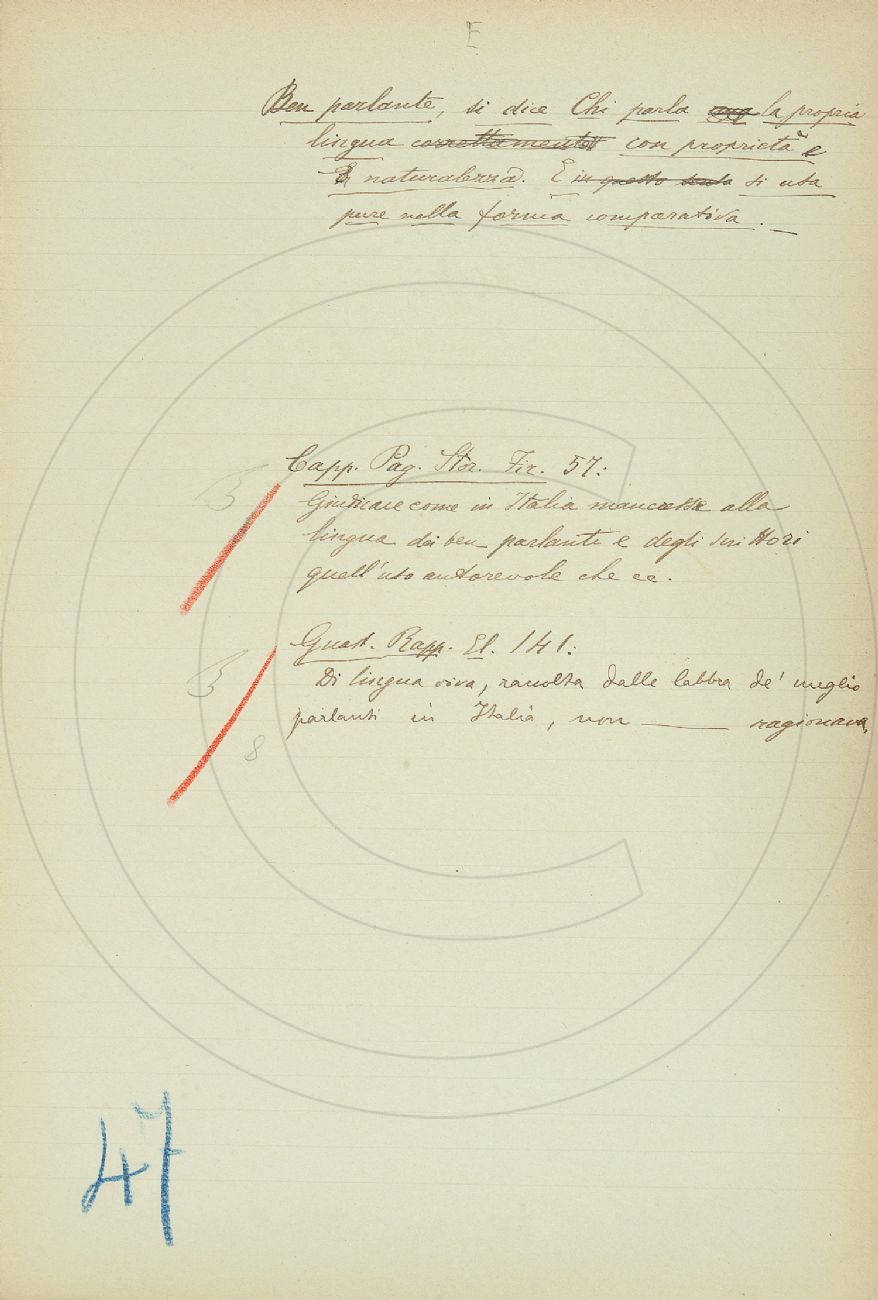 E
Ben parlante, si dice Chi parla una la propria
lingua correttamente con proprietà e
E naturalezza. E in questo senso si usa
pure nella forma comparativa. —
Capp. Pag. Stor. Fir. 57:
Giudicare come in Italia mancasse alla
lingua dei ben parlanti e degli scrittori
quell'uso autorevole che ec.
Guast. Rapp. El. 141:
Di lingua viva, raccolta dalle labbra de' meglio
parlanti in Italia, non —— ragionava,
8
47